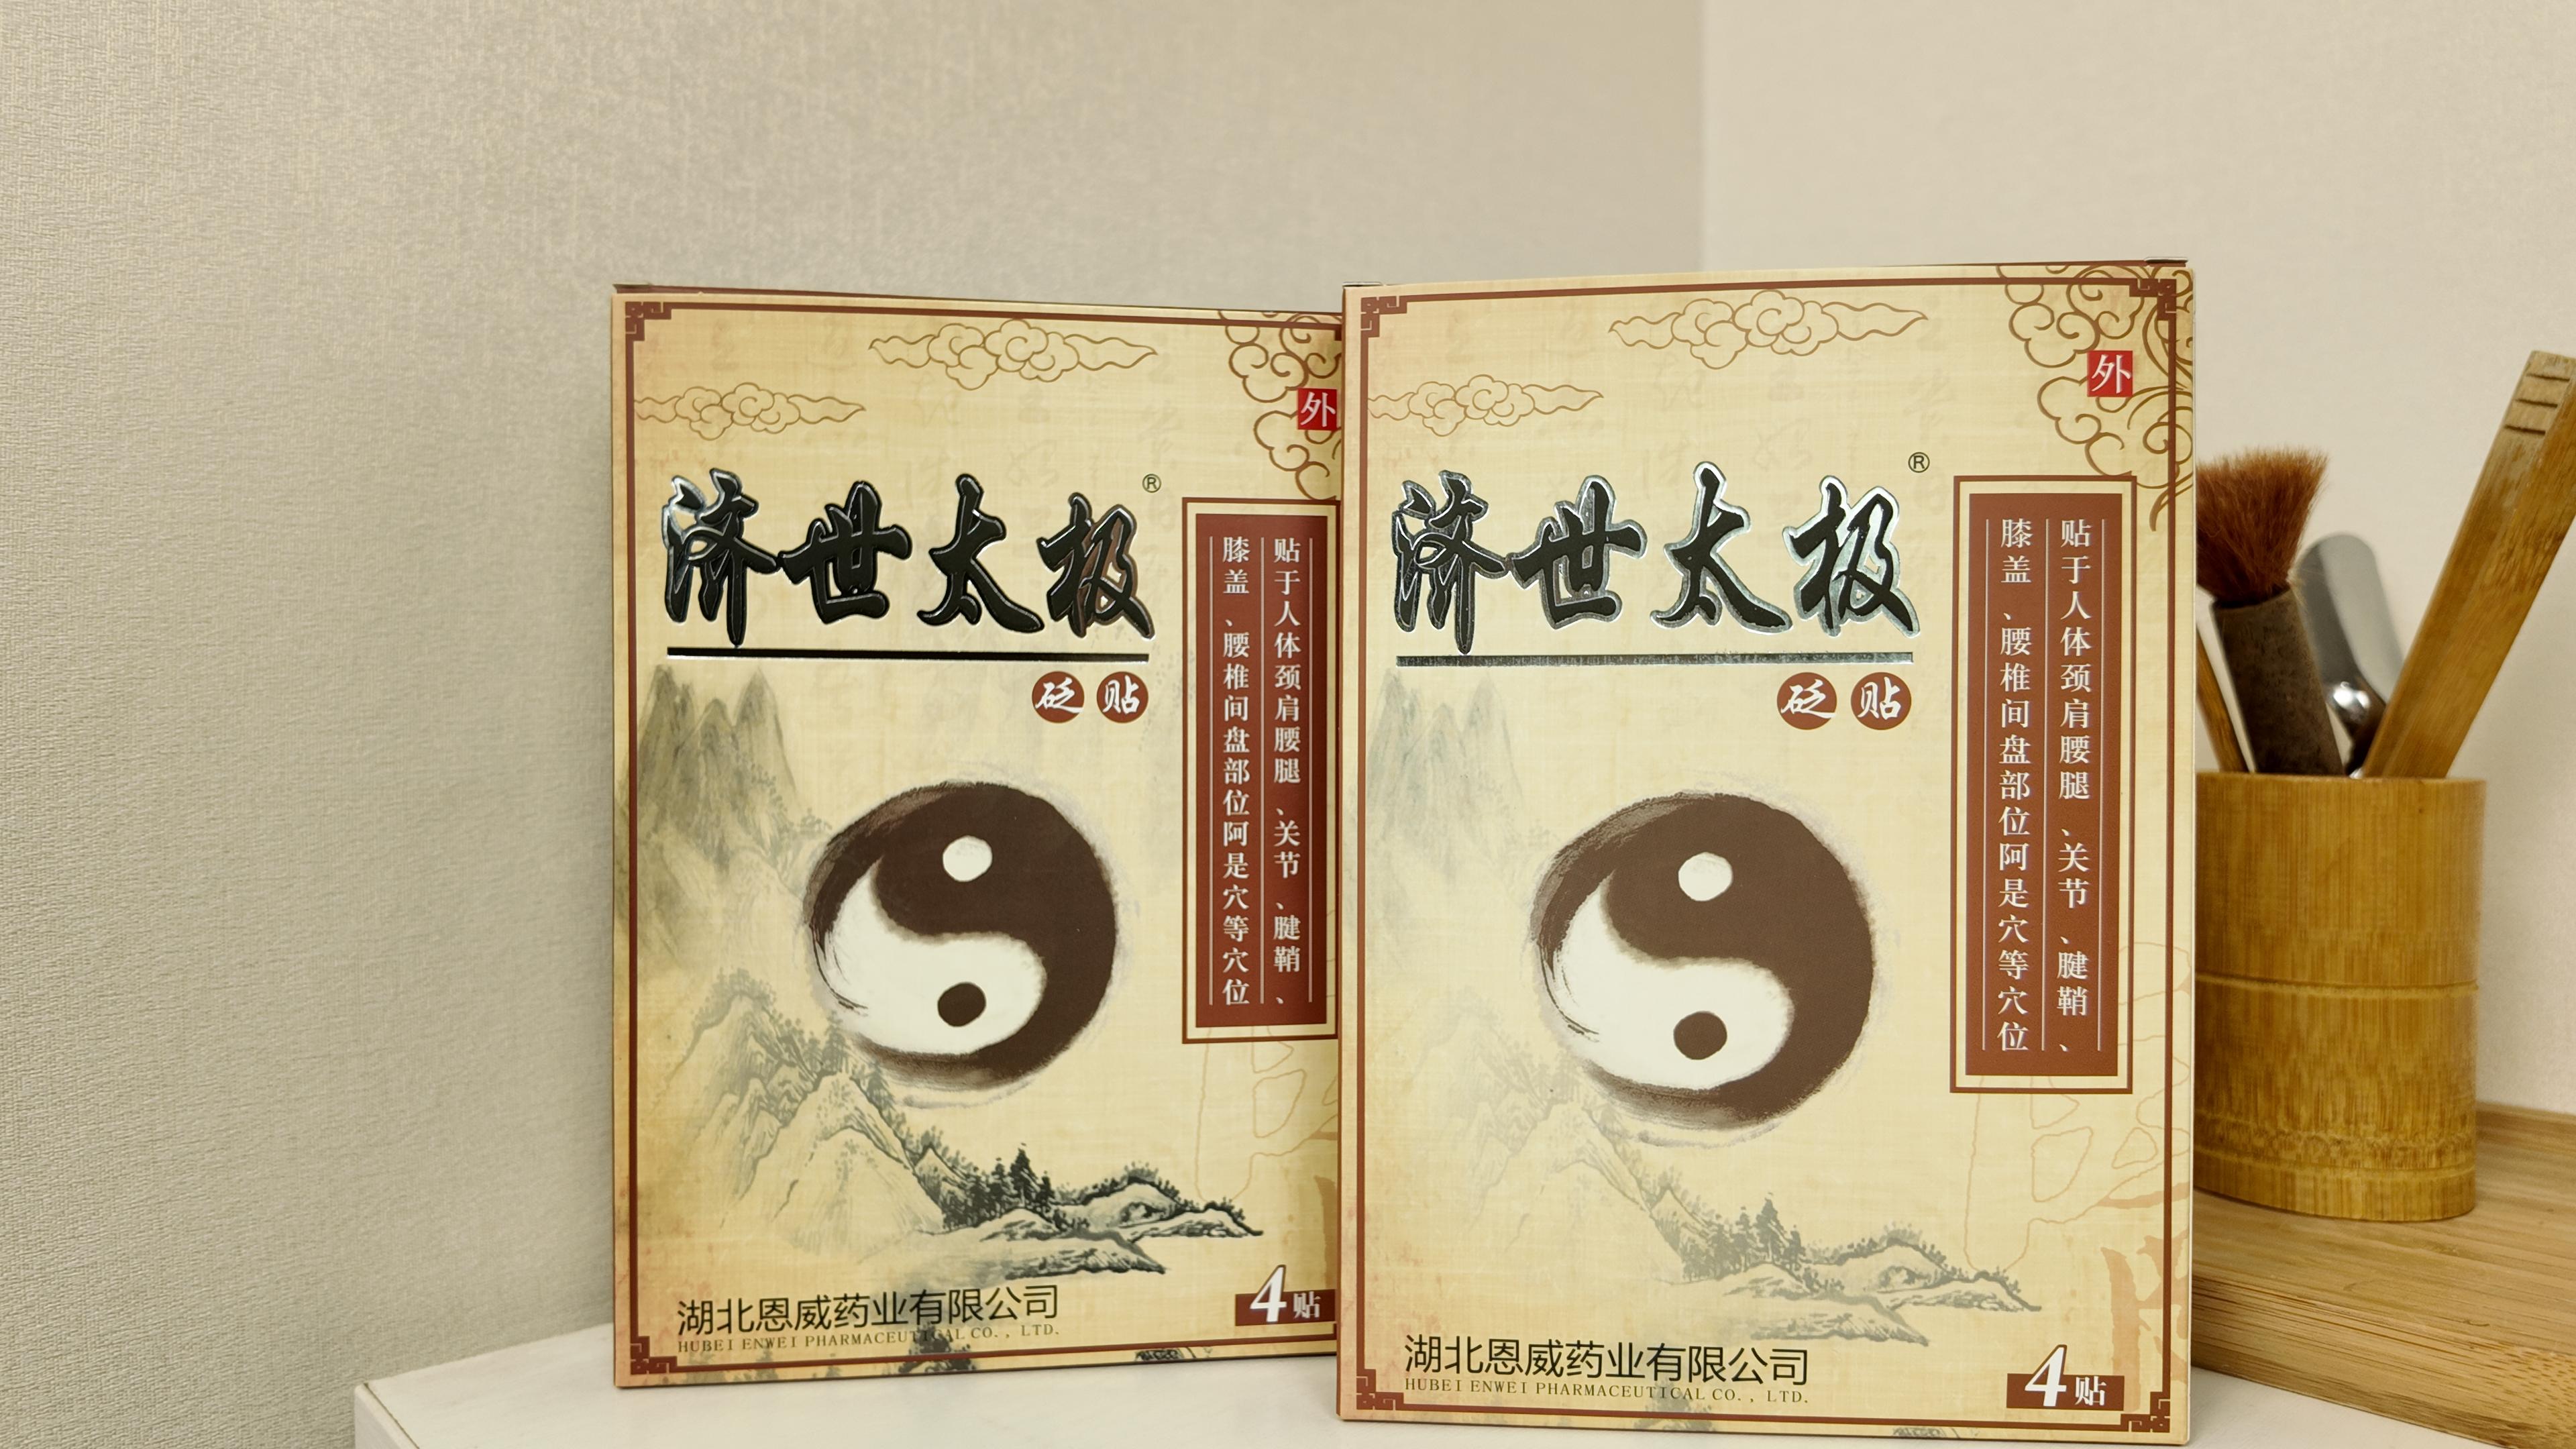 外
济世太极®
砭贴
贴于人体颈肩腰腿、关节、腱鞘、
膝盖、腰椎间盘部位阿是穴等穴位
湖北恩威药业有限公司
HUBEI ENWEI PHARMACEUTICAL CO., LTD.
4贴
外
济世太极®
砭贴
贴于人体颈肩腰腿、关节、腱鞘、
膝盖、腰椎间盘部位阿是穴等穴位
湖北恩威药业有限公司
HUBEI ENWEI PHARMACEUTICAL CO., LTD.
4贴